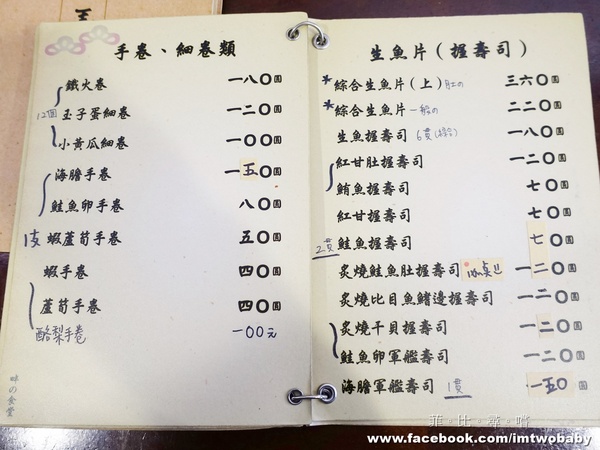 手卷、細卷類
鐵火卷 一八〇圓
12個 玉子蛋細卷 一二〇圓
小黃瓜細卷 一〇〇圓
海膽手卷 一五〇圓
鮭魚卵手卷 八〇圓
1支 蝦蘆筍手卷 五〇圓
蝦手卷 四〇圓
蘆筍手卷 四〇圓
酪梨手卷 一00元
の食堂
生魚片(握壽司)
*綜合生魚片(上) 肚の 三六〇圓
*綜合生魚片 一般の 二二〇圓
生魚握壽司 6貫(綜合) 一八〇圓
紅甘肚握壽司 一二〇圓
鮪魚握壽司 七〇圓
紅甘握壽司 七〇圓
2貫 鮭魚握壽司 七〇圓
炙燒鮭魚肚握壽司 一二〇圓
炙燒比目魚鰭邊握壽司 一二〇圓
炙燒干貝握壽司 一二〇圓
鮭魚卵軍艦壽司 一二〇圓
海膽軍艦壽司 1貫 一五0
菲·比·尋·嚐
www.facebook.com/imtwobaby